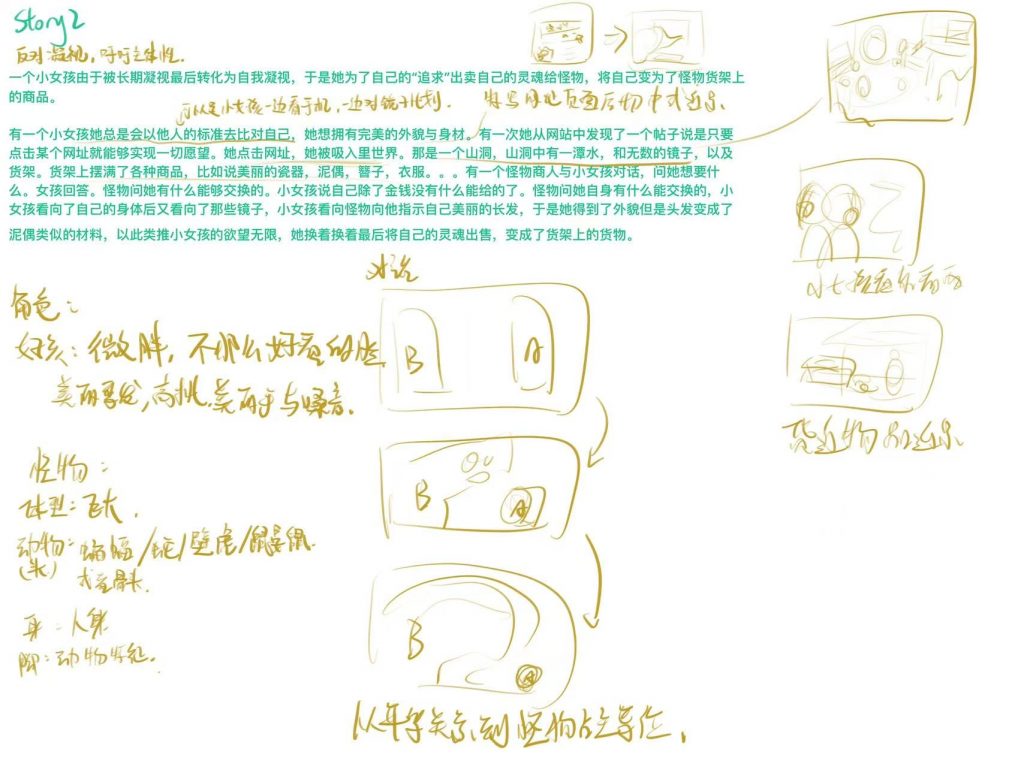 Story 2
反对凝视，呼吁主体性.
一个小女孩由于被长期凝视最后转化为自我凝视，于是她为了自己的“追求”出卖自己的灵魂给怪物，将自己变为了怪物货架上
的商品。
可以是小女孩一边看手机，一边对镜子比划.
有一个小女孩她总是会以他人的标准去比对自己，她想拥有完美的外貌与身材。有一次她从网站中发现了一个帖子说是只要
点击某个网址就能够实现一切愿望。她点击网址，她被吸入里世界。那是一个山洞，山洞中有一潭水，和无数的镜子，以及
货架。货架上摆满了各种商品，比如说美丽的瓷器，泥偶，簪子，衣服。。。有一个怪物商人与小女孩对话，问她想要什
么。女孩回答。怪物问她有什么能够交换的。小女孩说自己除了金钱没有什么能给的了。怪物问她自身有什么能交换的，小
女孩看向了自己的身体后又看向了那些镜子，小女孩看向怪物向他指示自己美丽的长发，于是她得到了外貌但是头发变成了
泥偶类似的材料，以此类推小女孩的欲望无限，她换着换着最后将自己的灵魂出售，变成了货架上的货物。
对话
B A
B A
B A
从平等关系到怪物占主导位.
角色：
女孩：微胖，不那么好看的脸
美丽秀发，高挑.美丽手与嗓音.
怪物：
体型：飞大.
动物：蝙蝠/蛇/壁虎/鼹鼠.
(头)
或者骨头.
身：人身
脚：动物特征.